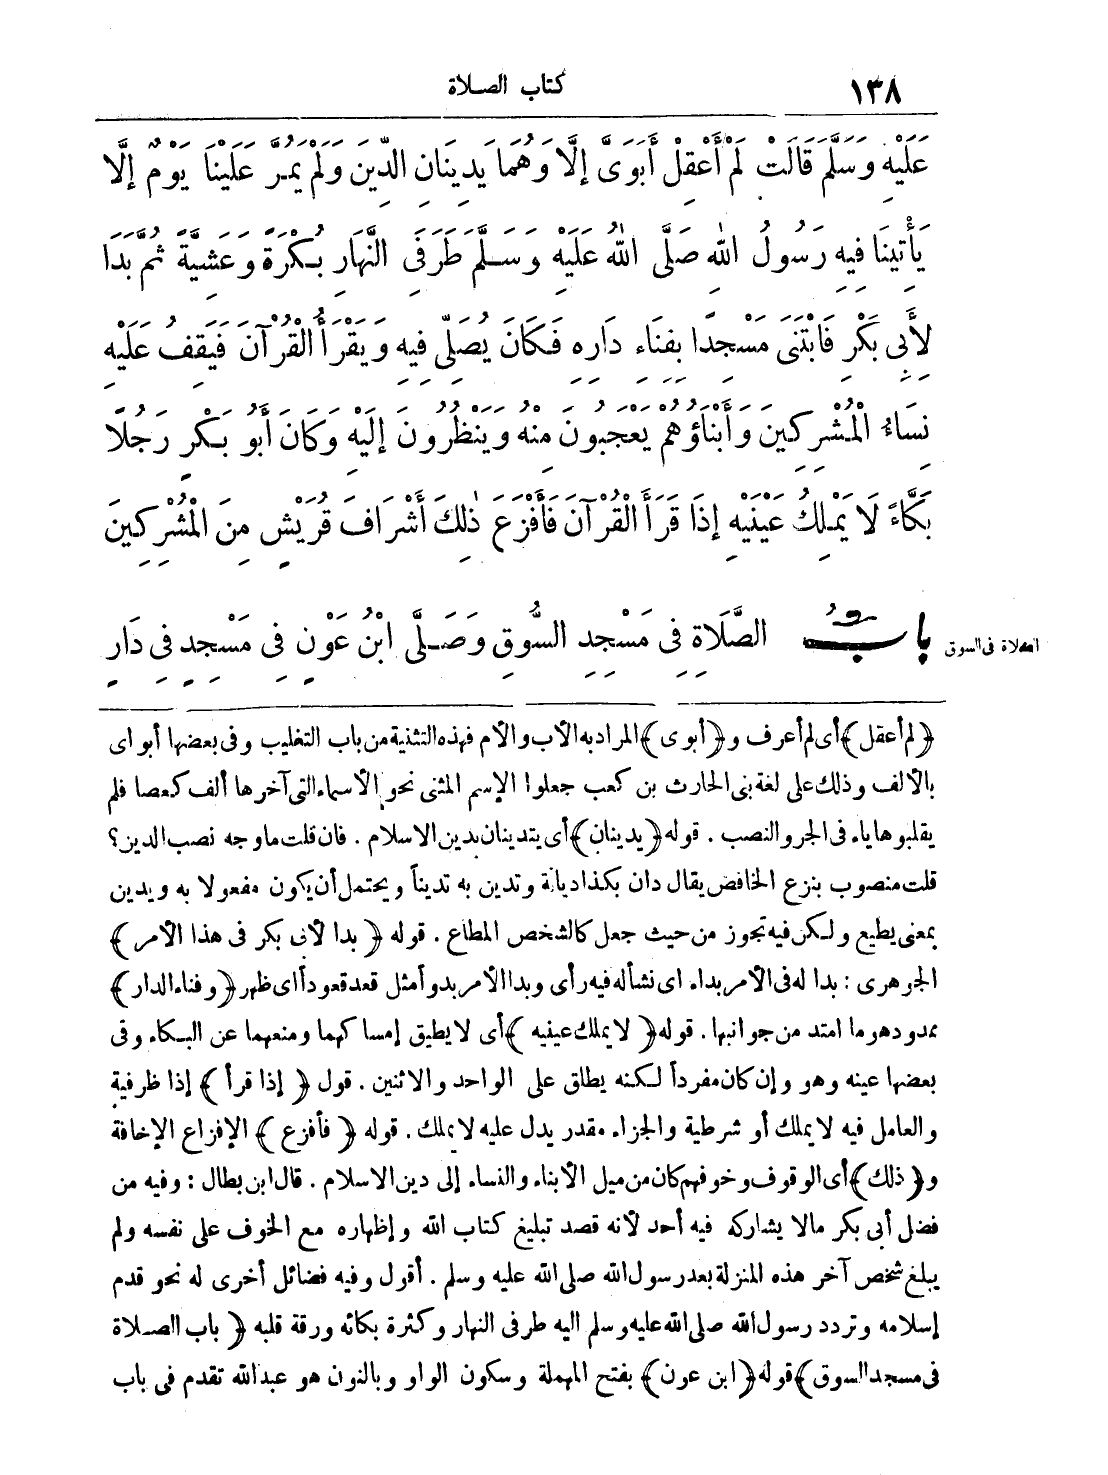 ١٣٨ كتاب الصلاة
عَلَيْهِ وَسَلَّمَ قَالَتْ لَمْ أَعْقِلْ أَبَوَىَّ إِلَّا وَهُمَا يَدِينَانِ الدِّينَ وَلَمْ يَمُرَّ عَلَيْنَا يَوْمٌ إِلَّا
يَأْتِينَا فِيهِ رَسُولُ اللهِ صَلَّى اللهُ عَلَيْهِ وَسَلَّمَ طَرَفَىِ النَّهَارِ بُكْرَةً وَعَشِيَّةً ثُمَّ بَدَا
لِأَبِى بَكْرٍ فَابْتَنَى مَسْجِدًا بِفِنَاءِ دَارِهِ فَكَانَ يُصَلِّى فِيهِ وَيَقْرَأُ الْقُرْآنَ فَيَقِفُ عَلَيْهِ
نِسَاءُ الْمُشْرِكِينَ وَأَبْنَاؤُهُمْ يَعْجَبُونَ مِنْهُ وَيَنْظُرُونَ إِلَيْهِ وَكَانَ أَبُو بَكْرٍ رَجُلًا
بَكَّاءً لَا يَمْلِكُ عَيْنَيْهِ إِذَا قَرَأَ الْقُرْآنَ فَأَفْزَعَ ذٰلِكَ أَشْرَافَ قُرَيْشٍ مِنَ الْمُشْرِكِينَ
الصلاة فى السوق
بَابُ الصَّلَاةِ فِى مَسْجِدِ السُّوقِ وَصَلَّى ابْنُ عَوْنٍ فِى مَسْجِدٍ فِى دَارٍ
﴿لم أعقل﴾ أى لم أعرف و ﴿أبوى﴾ المراد به الأب والأم فهذه التثنية من باب التغليب وفى بعضها أبواى
بالألف وذلك على لغة بنى الحارث بن كعب جعلوا الإسم المثنى نحو الأسماء التى آخرها ألف كعصا فلم
يقلبوها ياء فى الجر والنصب . قوله ﴿يدينان﴾ أى يتدينان بدين الاسلام . فان قلت ما وجه نصب الدين؟
قلت منصوب بنزع الخافض يقال دان بكذا ديانة وتدين به تديناً ويحتمل أن يكون مفعولا به ويدين
بمعنى يطيع ولكن فيه تجوز من حيث جعل كالشخص المطاع . قوله ﴿ بدا لأبى بكر فى هذا الأمر ﴾
الجوهرى : بدا له فى الأمر بداء اى نشأ له فيه رأى وبدا الأمر بدوا مثل قعد قعوداً اى ظهر ﴿وفناء الدار﴾
ممدود هو ما امتد من جوانبها . قوله ﴿ لا يملك عينيه ﴾ أى لا يطيق إمساكهما ومنعهما عن البكاء وفى
بعضها عينه وهو وإن كان مفرداً لكنه يطلق على الواحد والاثنين . قول ﴿ إذا قرأ ﴾ إذا ظرفية
والعامل فيه لا يملك أو شرطية والجزاء مقدر يدل عليه لا يملك . قوله ﴿ فأفزع ﴾ الإفزاع الإخافة
و ﴿ ذلك ﴾ أى الوقوف وخوفهم كان من ميل الأبناء والنساء إلى دين الاسلام . قال ابن بطال : وفيه من
فضل أبى بكر مالا يشاركه فيه أحد لأنه قصد تبليغ كتاب الله وإظهاره مع الخوف على نفسه ولم
يبلغ شخص آخر هذه المنزلة بعد رسول الله صلى الله عليه وسلم . أقول وفيه فضائل أخرى له نحو قدم
إسلامه وتردد رسول الله صلى الله عليه وسلم اليه طرفى النهار وكثرة بكائه ورقة قلبه ﴿ باب الصلاة
فى مسجد السوق ﴾ قوله ﴿ ابن عون ﴾ بفتح المهملة وسكون الواو وبالنون هو عبد الله تقدم فى باب